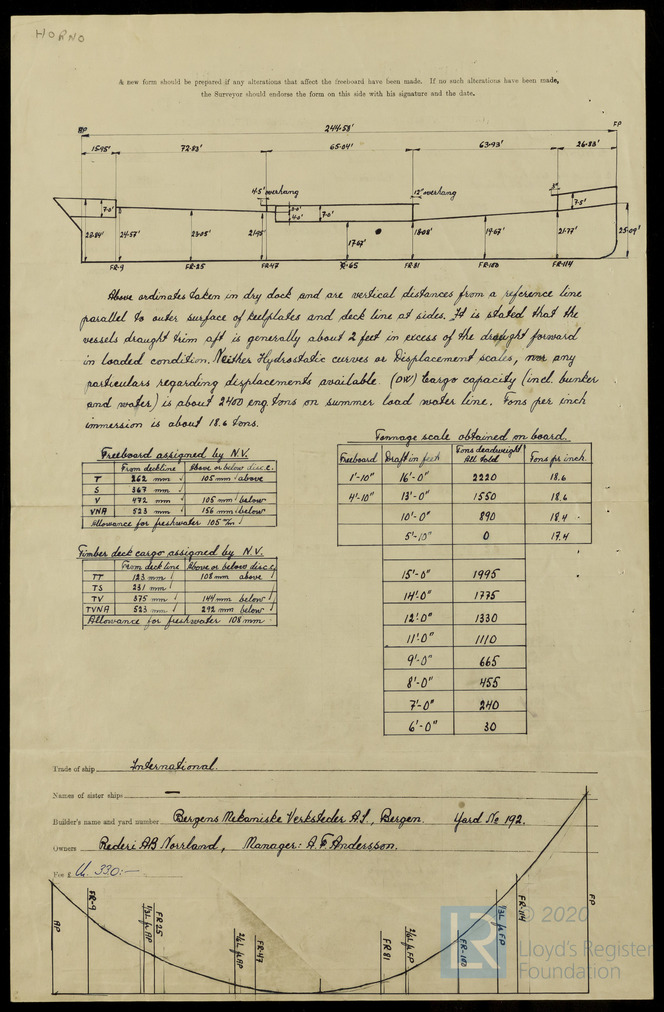 HORNO
A new form should be prepared if any alterations that affect the freeboard have been made. If no such alterations have been made,
the Surveyor should endorse the form on this side with his signature and the date.
AP FP
244·58'
15·95' 72·83' 65·04' 63·93' 26·83'
4·5' overhang 12" overhang
7·0' 3·0' 4·0' 7·0' 7·5'
23·84' 24·57' 23·05' 21·95' 17·67' 18·08' 19·67' 21·77' 25·09'
FR·9 FR·25 FR·47 FR·65 FR·81 FR·100 FR·114
Above ordinates taken in dry dock and are vertical distances from a reference line
parallel to outer surface of keelplates and deck line at sides. It is stated that the
vessels draught trim aft is generally about 2 feet in excess of the draught forward
in loaded condition. Neither Hydrostatic curves or Displacement scales, nor any
particulars regarding displacements available. (DW) Cargo capacity (incl. bunker
and water) is about 2400 eng tons on summer load water line. Tons per inch
immersion is about 18.6 tons.
Freeboard assigned by N.V.
From deckline Above or below disc. c.
T 262 mm 105 mm above
S 367 mm
V 472 mm 105 mm below
VNA 523 mm 156 mm below
Allowance for freshwater 105 m/m
Timber deck cargo assigned by N.V.
From deckline Above or below disc c.
TT 123 mm 108 mm above
TS 231 mm
TV 375 mm 144 mm below
TVNA 523 mm 292 mm below
Allowance for freshwater 108 mm
Tonnage scale obtained on board.
Freeboard Draft in feet Tons deadweight All told Tons pr inch.
1'-10" 16'-0" 2220 18.6
4'-10" 13'-0" 1550 18.6
10'-0" 890 18.4
5'-10" 0 17.4
15'-0" 1995
14'-0" 1775
12'-0" 1330
11'-0" 1110
9'-0" 665
8'-0" 455
7'-0" 240
6'-0" 30
Trade of ship International.
Names of sister ships —
Builder's name and yard number Bergens Mekaniske Verksteder A/S, Bergen. Yard No 192.
Owners Rederi AB Norrland, Manager: A.F. Andersson.
Fee £ 330:—
AP FR·9 1/3L fr AP FR 25 2/6L fr AP FR·47 FR 81 2/6L fr FP FR·100 1/3L fr FP FR·114 FP
LR © 2020
Lloyd's Register
Foundation